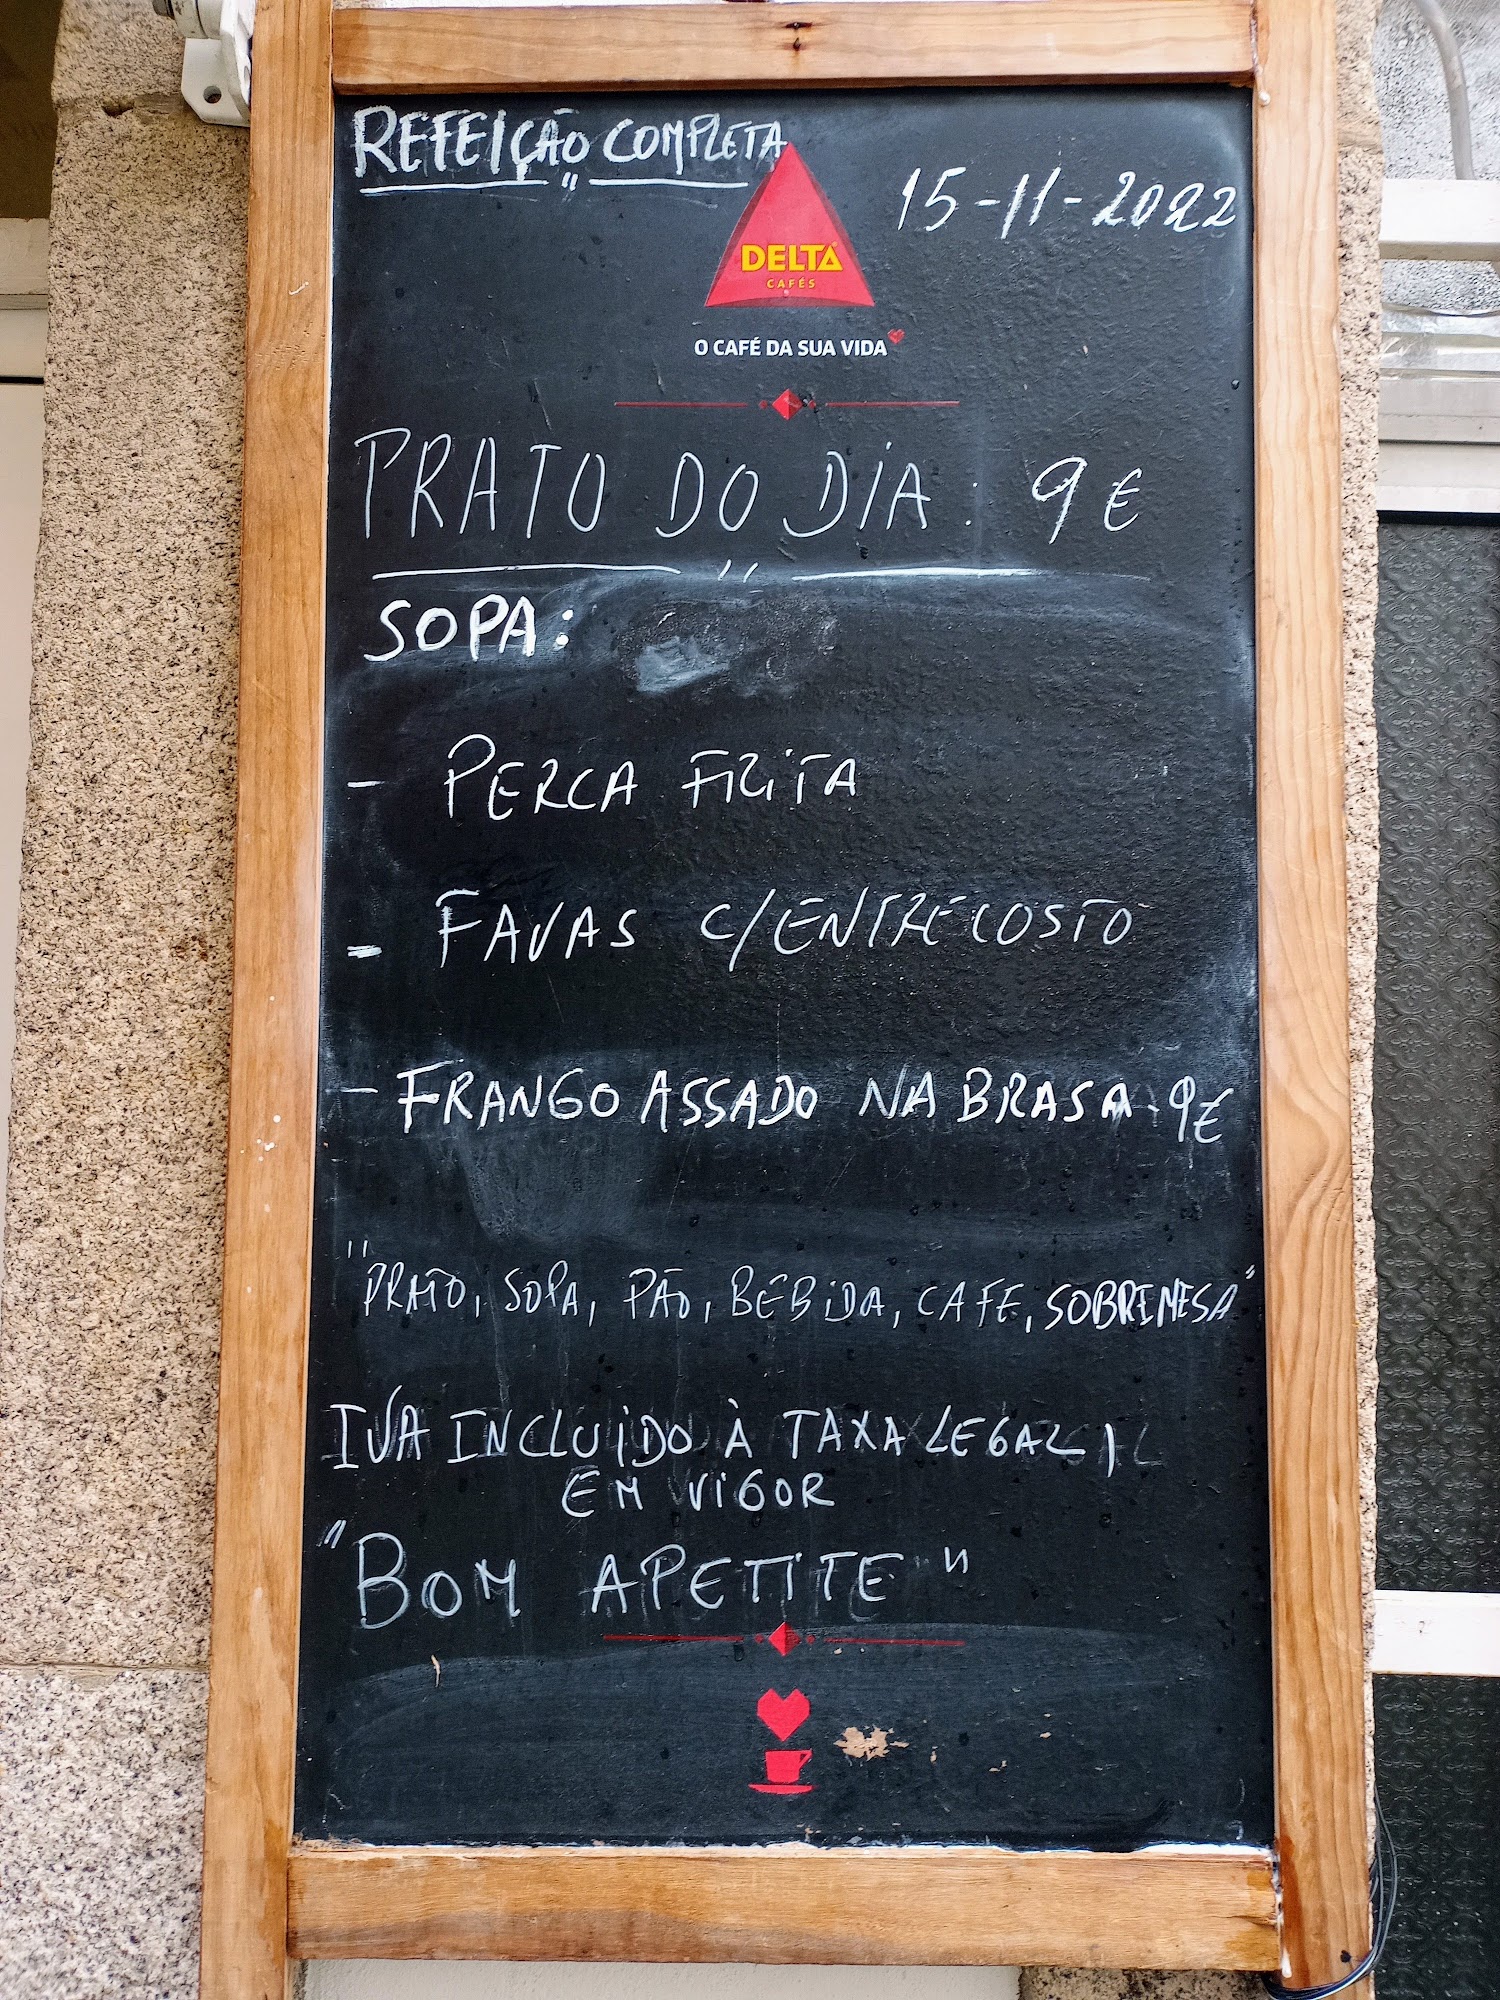 REFEIÇÃO COMPLETA
15-11-2022
DELTA
CAFÉS
O CAFÉ DA SUA VIDA
PRATO DO DIA: 9€
SOPA:
- PERCA FRITA
- FAVAS C/ENTRECOSTO
- FRANGO ASSADO NA BRASA - 9€
"PRATO, SOPA, PÃO, BEBIDA, CAFE, SOBREMESA"
IVA INCLUIDO À TAXA LEGAL,
EM VIGOR
"BOM APETITE"